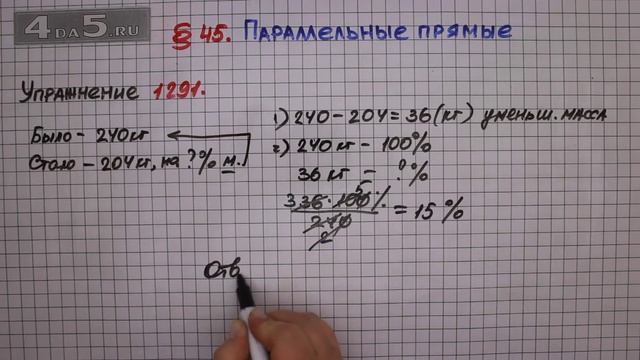 4DA5.RU
§ 45. Параллельные прямые
Упражнение 1291.
Было – 240 кг
Стало – 204 кг, на ?% м.
1) 240 – 204 = 36 (кг) уменьш. масса
2) 240 кг – 100%
36 кг – ?%
3 36 · 100 5 %
240 = 15 %
2
Отв